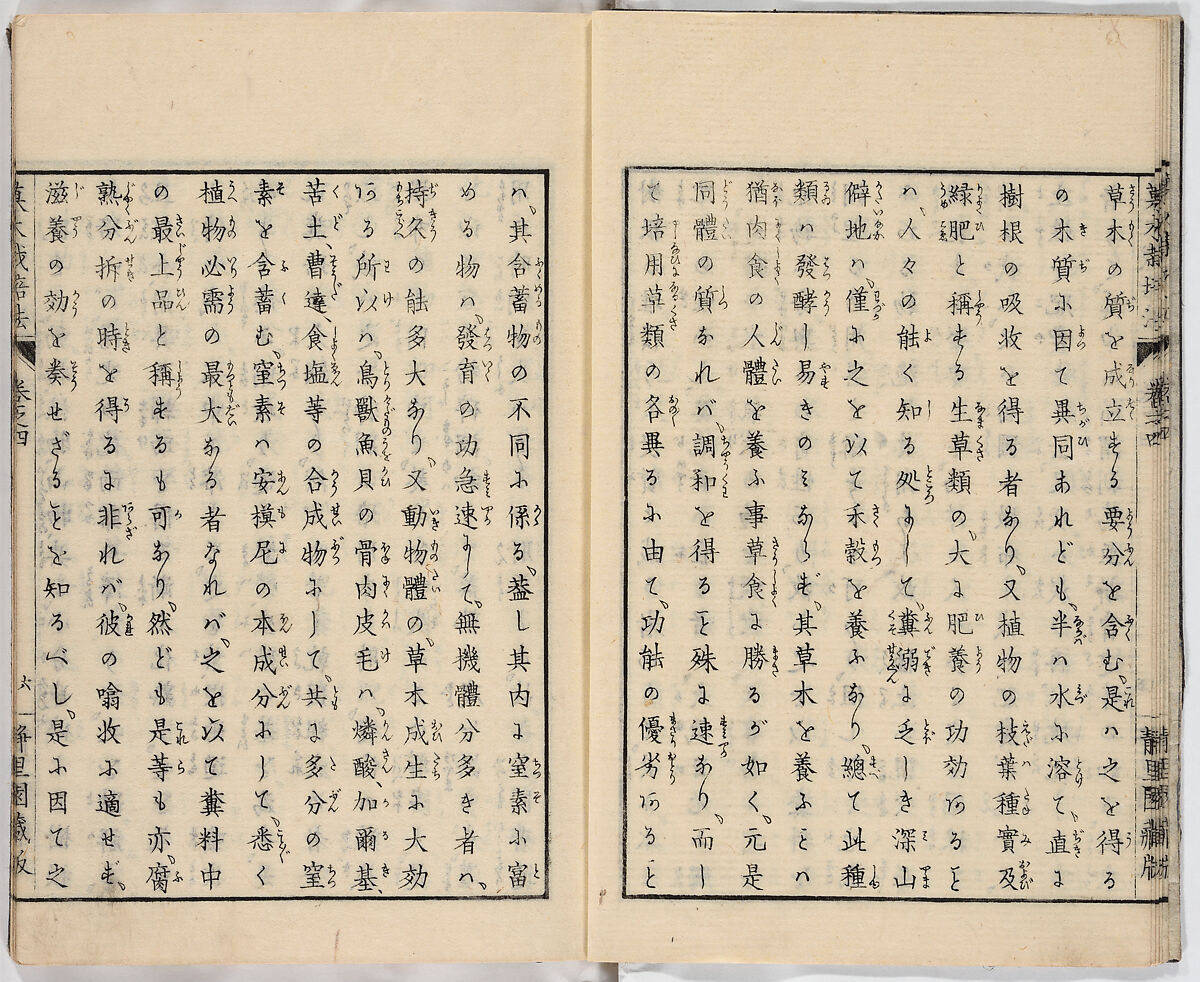 菓木栽培法
卷之四
靜里園藏版
草木の質を成立する要分を含む、是ハ之を得る
の木質ニ因て異同あれども、半ハ水ニ溶て、直に
樹根の吸收を得る者なり、又植物の枝葉種實及
綠肥と稱する生草類の、大に肥養の功効あるヿ
ハ、人々の能く知る処にして、糞溺に乏しき深山
僻地ハ、僅ニ之を以て禾穀を養ふなり、總て此種
類ハ發酵し易きのミならず、其草木を養ふヿハ
猶肉食の人體を養ふ事草食に勝るが如く、元是
同體の質なれバ、調和を得るヿ殊に速なり、而し
て培用草類の各異るニ由て、功能の優劣あるヿ
ハ、其含蓄物の不同ニ係る、蓋し其内に窒素ニ富
める物ハ、發育の功急速にして、無機體分多き者ハ、
持久の能多大なり、又動物體の、草木成生ニ大効
ある所以ハ、鳥獸魚貝の骨肉皮毛ハ、燐酸、加爾基、
苦土、曹達、食塩等の合成物ニして、共に多分の窒
素を含蓄む、窒素ハ安摸尼の本成分ニして、悉く
植物必需の最大なる者なれバ、之を以て糞料中
の最上品と稱するも可なり、然ども是等も亦、腐
熟分拆の時を得るに非れバ、彼の噏收ニ適せず、
滋養の効を奏せざるヿを知るべし、是ニ因て之
菓木栽培法
卷之四
六
靜里園藏版